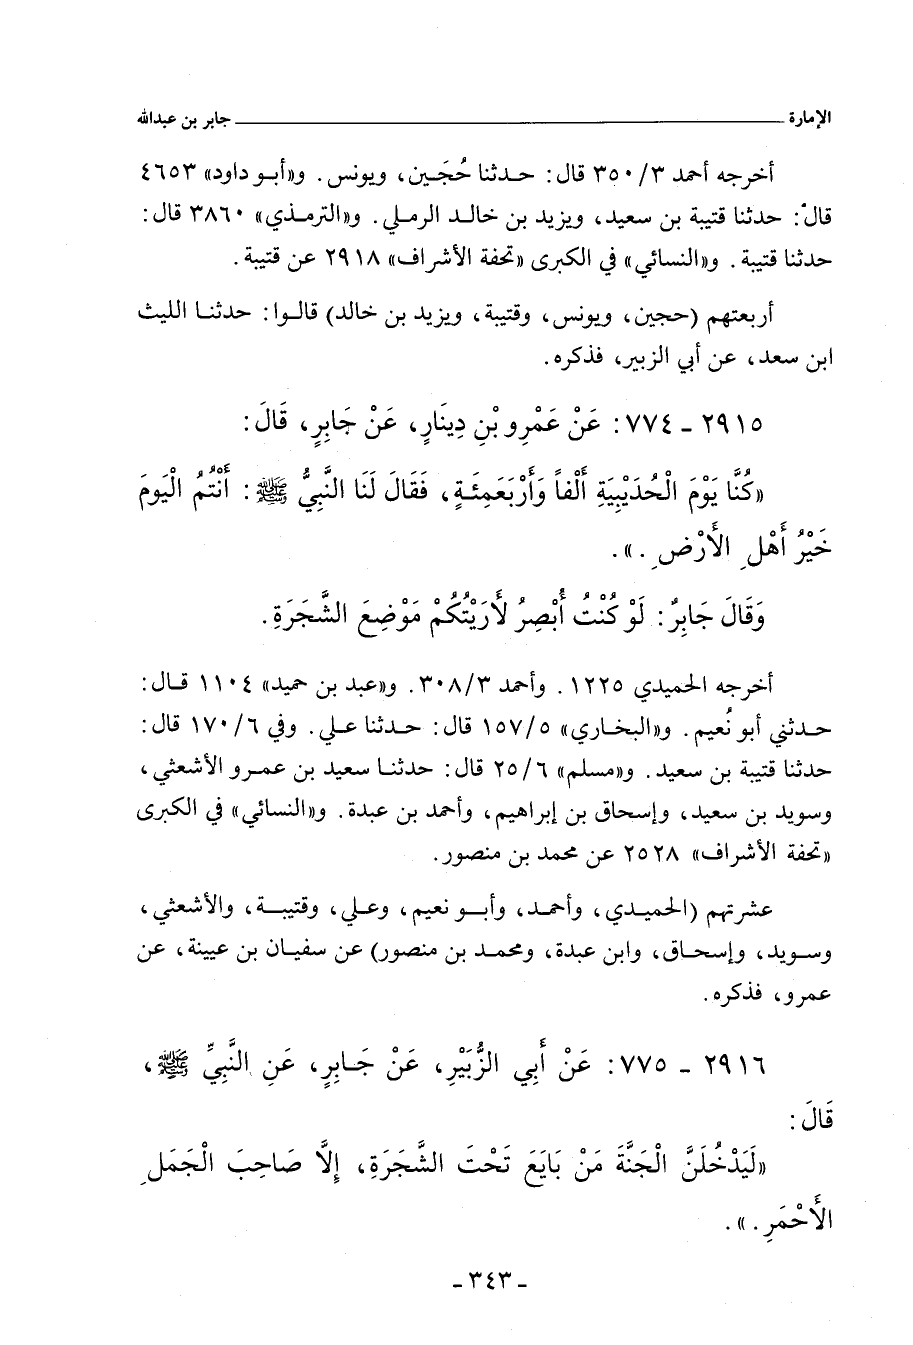 الإمارة ــــــــ جابر بن عبدالله
أخرجه أحمد ٣/ ٣٥٠ قال: حدثنا حُجَين، ويونس. و«أبو داود» ٤٦٥٣
قال: حدثنا قتيبة بن سعيد، ويزيد بن خالد الرملي. و«الترمذي» ٣٨٦٠ قال:
حدثنا قتيبة. و«النسائي» في الكبرى «تحفة الأشراف» ٢٩١٨ عن قتيبة.
أربعتهم (حجين، ويونس، وقتيبة، ويزيد بن خالد) قالوا: حدثنا الليث
ابن سعد، عن أبي الزبير، فذكره.
٢٩١٥ - ٧٧٤: عَنْ عَمْرِو بْنِ دِينَارٍ، عَنْ جَابِرٍ، قَالَ:
«كُنَّا يَوْمَ الْحُدَيْبِيَةِ أَلْفاً وَأَرْبَعَمِئَةٍ، فَقَالَ لَنَا النَّبِيُّ ﷺ: أَنْتُمُ الْيَومَ
خَيْرُ أَهْلِ الأَرْضِ.».
وَقَالَ جَابِرٌ: لَوْ كُنْتُ أُبْصِرُ لأَرَيْتُكُمْ مَوْضِعَ الشَّجَرَةِ.
أخرجه الحميدي ١٢٢٥. وأحمد ٣/ ٣٠٨. و«عبد بن حميد» ١١٠٤ قال:
حدثني أبو نُعيم. و«البخاري» ٥/ ١٥٧ قال: حدثنا علي. وفي ٦/ ١٧٠ قال:
حدثنا قتيبة بن سعيد. و«مسلم» ٦/ ٢٥ قال: حدثنا سعيد بن عمرو الأشعثي،
وسويد بن سعيد، وإسحاق بن إبراهيم، وأحمد بن عبدة. و«النسائي» في الكبرى
«تحفة الأشراف» ٢٥٢٨ عن محمد بن منصور.
عشرتهم (الحميدي، وأحمد، وأبو نعيم، وعلي، وقتيبة، والأشعثي،
وسويد، وإسحاق، وابن عبدة، ومحمد بن منصور) عن سفيان بن عيينة، عن
عمرو، فذكره.
٢٩١٦ - ٧٧٥: عَنْ أَبِي الزُّبَيْرِ، عَنْ جَابِرٍ، عَنِ النَّبِيِّ ﷺ،
قَالَ:
«لَيَدْخُلَنَّ الْجَنَّةَ مَنْ بَايَعَ تَحْتَ الشَّجَرَةِ، إِلاَّ صَاحِبَ الْجَمَلِ
الأَحْمَرِ.».
- ٣٤٣ -